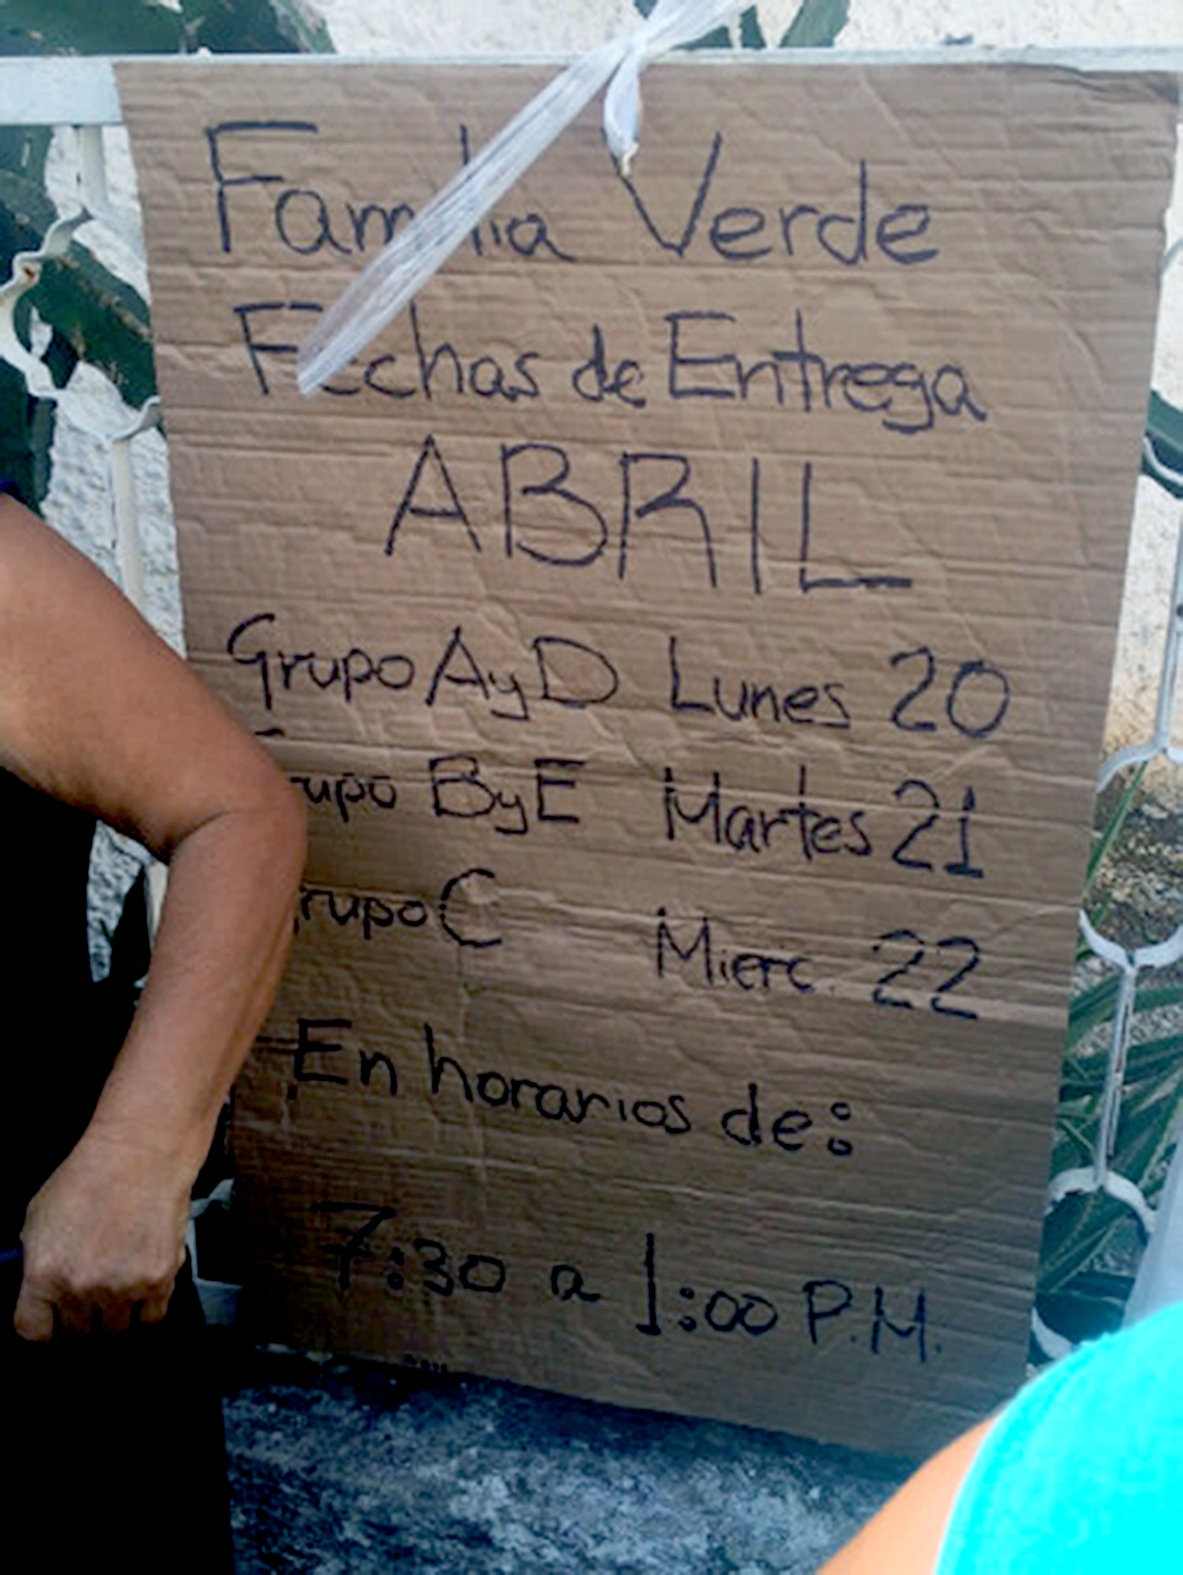 Familia Verde
Fechas de Entrega
ABRIL
Grupo A y D Lunes 20
Grupo B y E Martes 21
Grupo C Mierc. 22
En horarios de:
7:30 a 1:00 P.M.